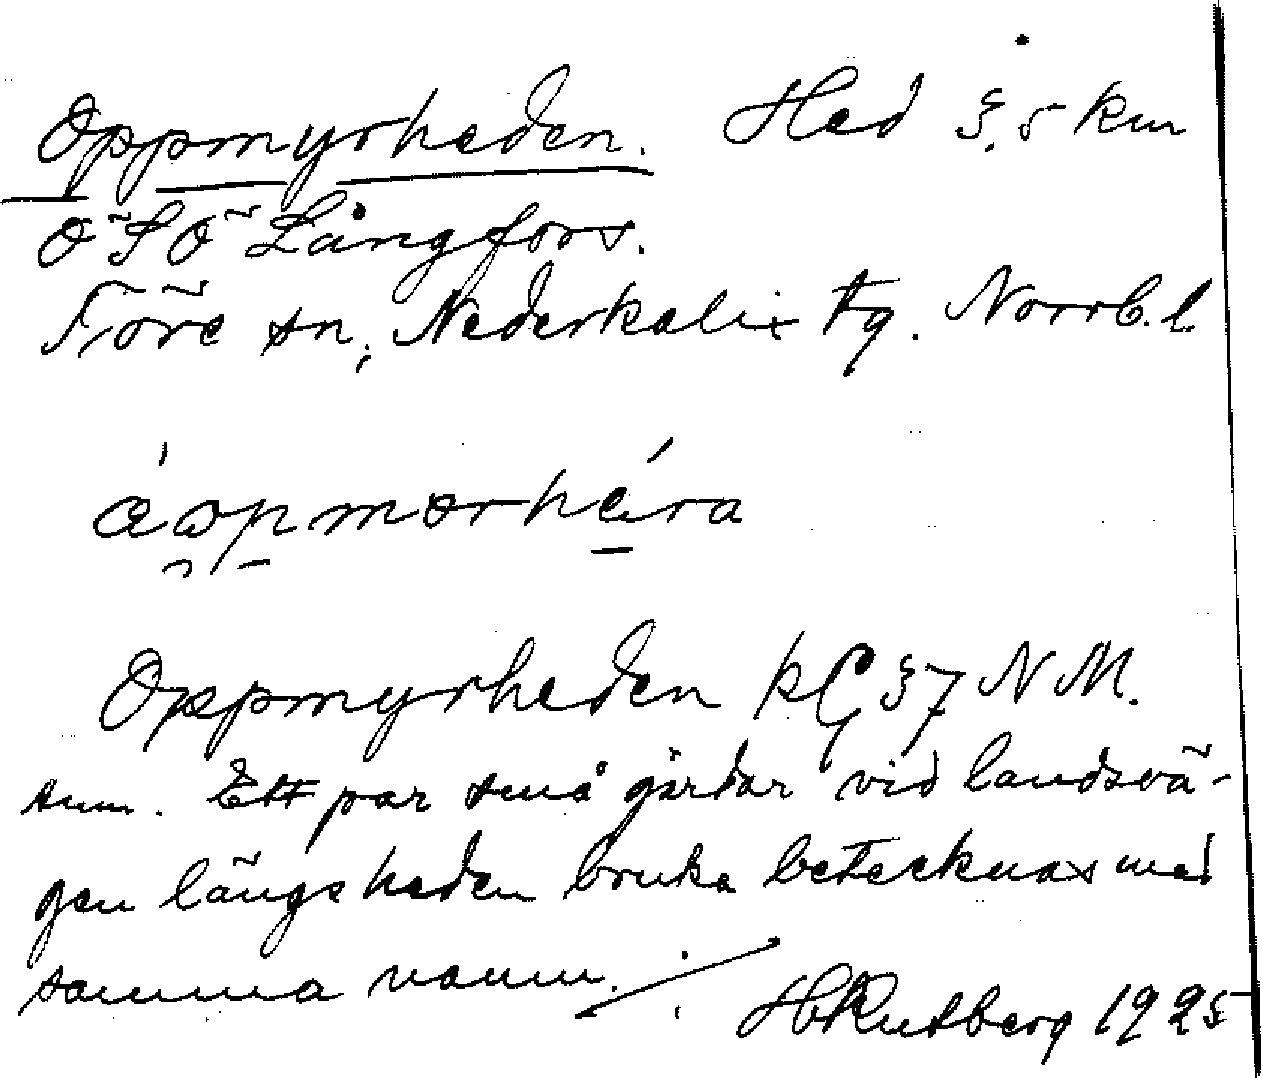 Oppmyrheden. Hed 3,5 km
ÖSÖ Långfors.
Töre sn, Nederkalix tg. Norrb. l
Oppmyrheden kG 37 N M.
snm. Ett par små gärdar vid landsvä-
gen längs heden bruka betecknas med
samma namn.
HRutberg 1925